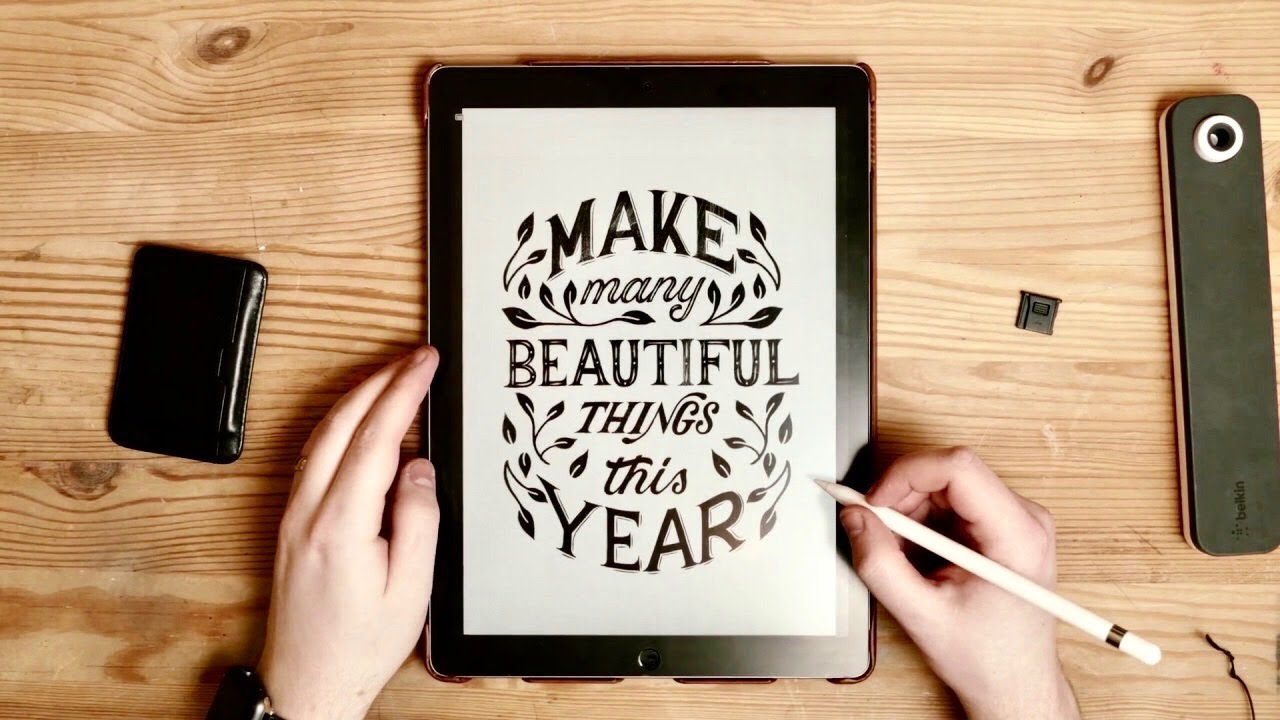 MAKE
many
BEAUTIFUL
THINGS
this
YEAR
belkin